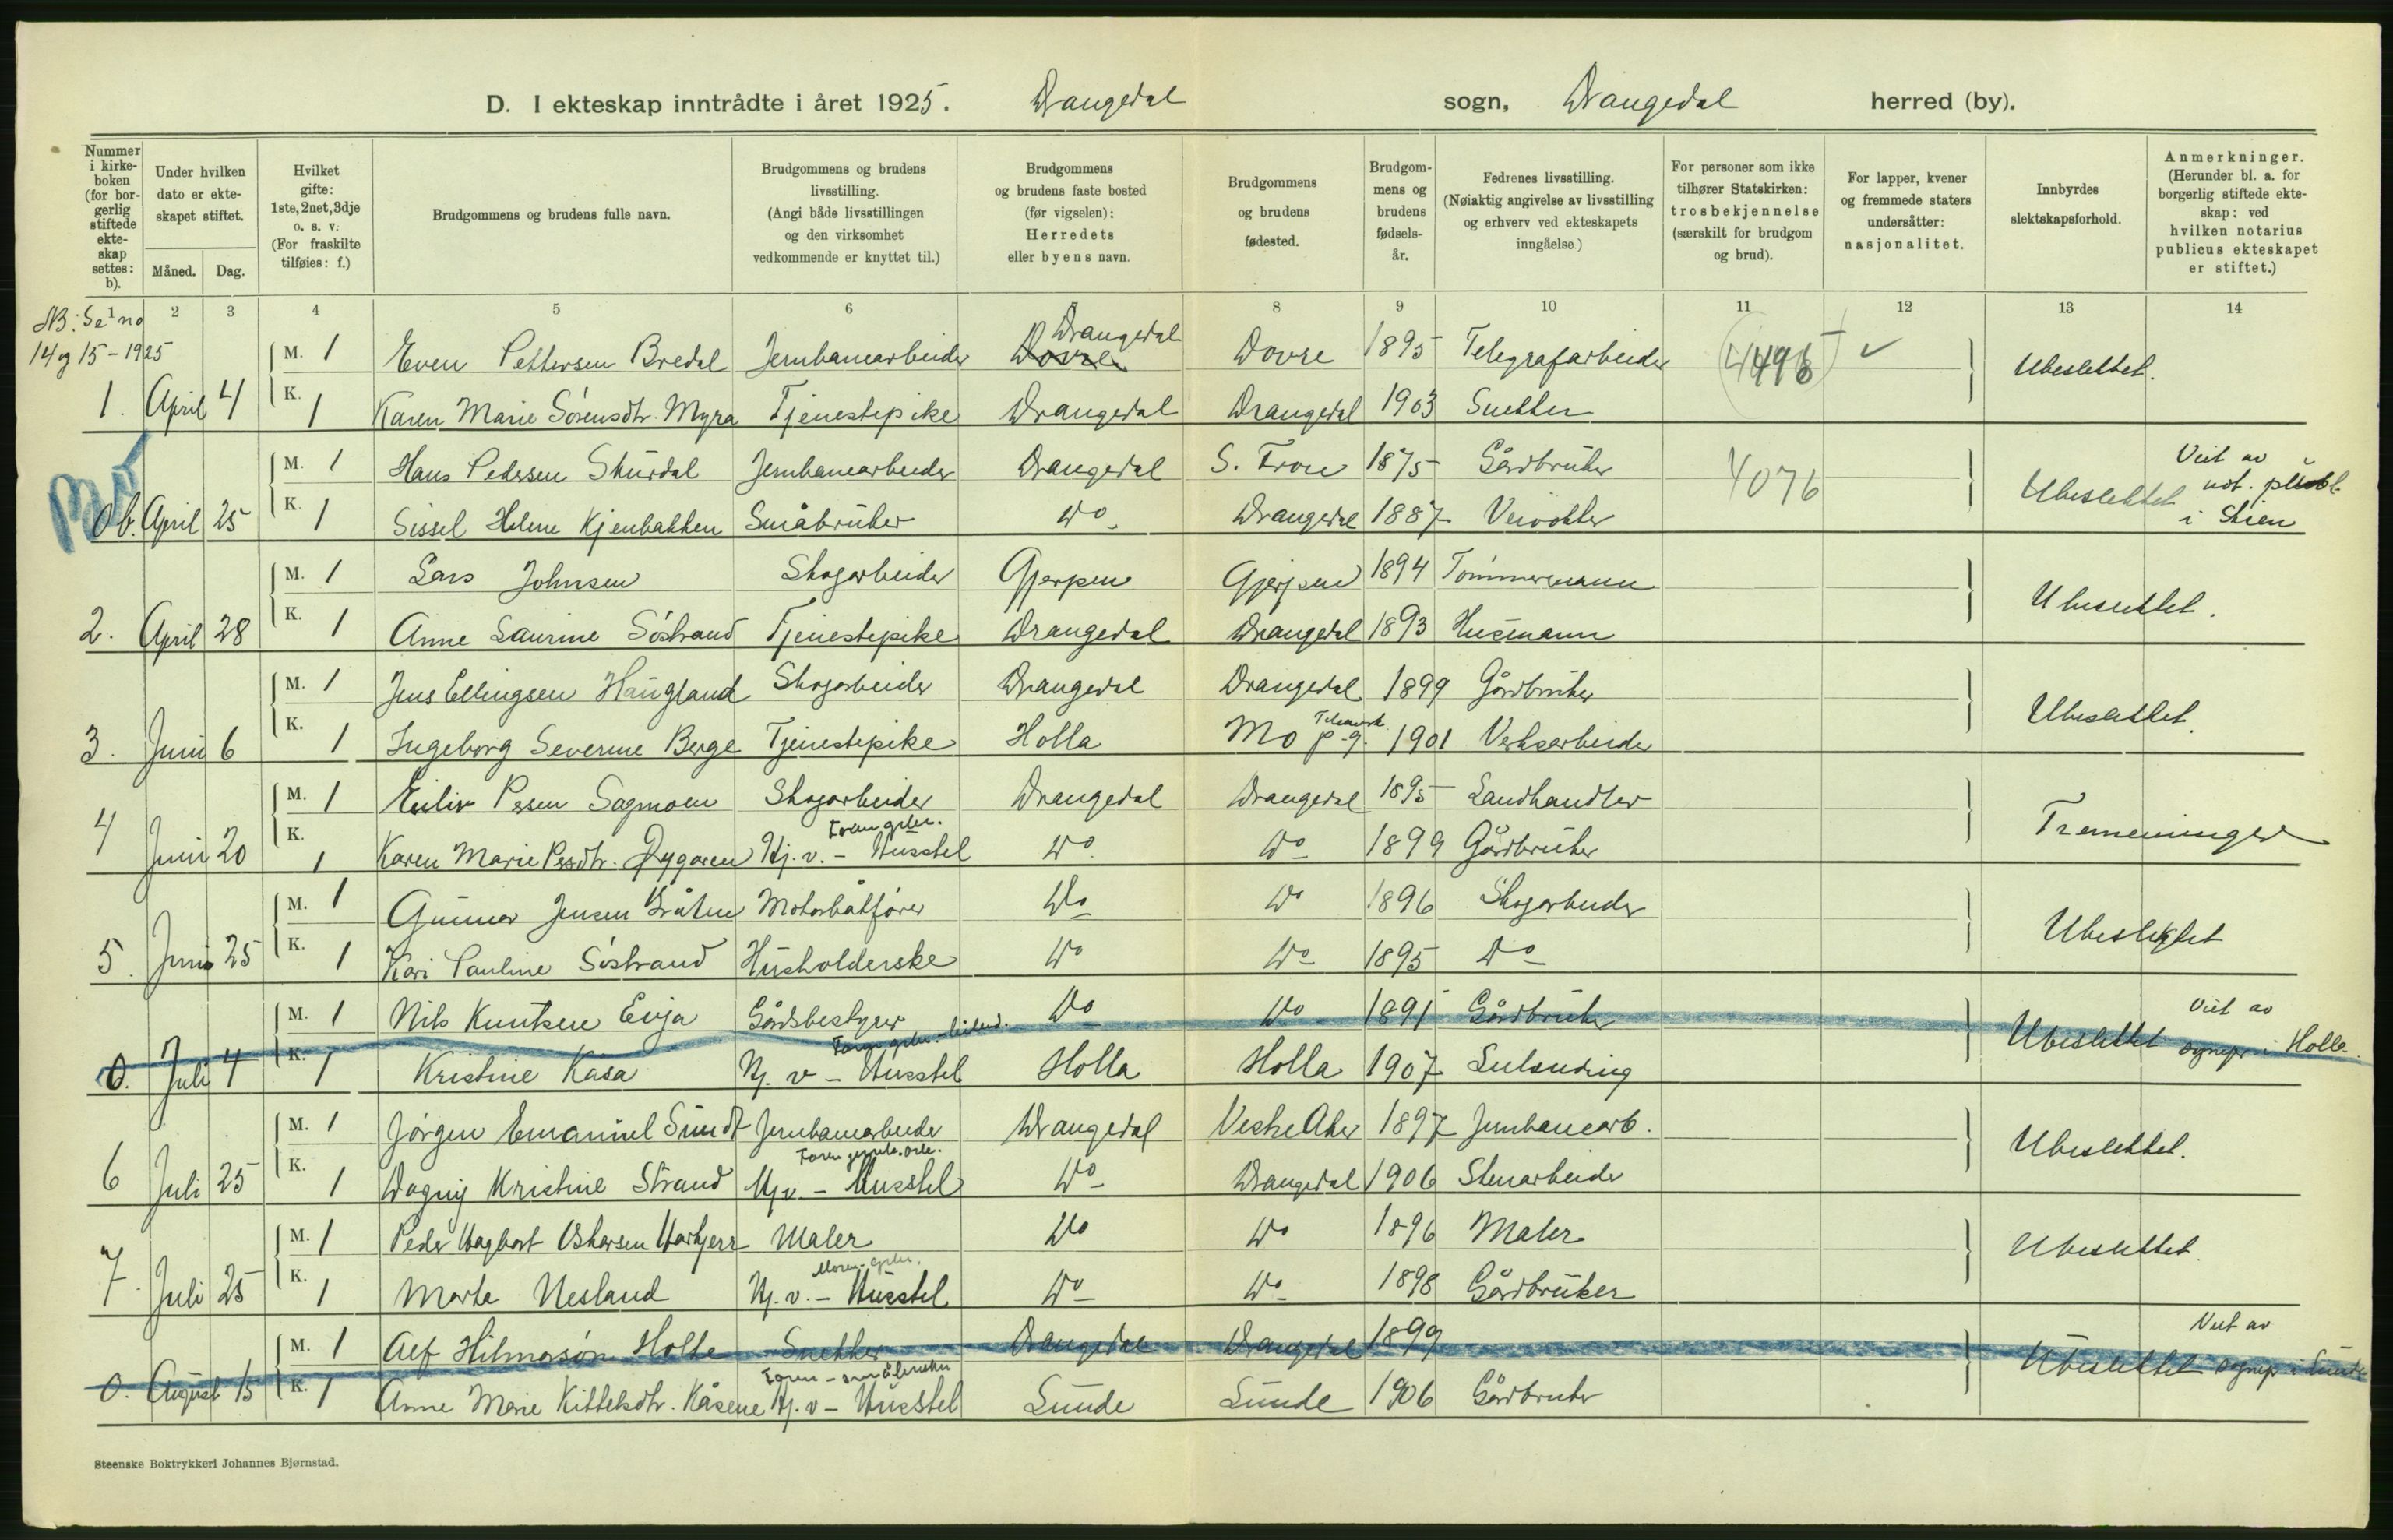 D. I ekteskap inntrådte i året 1925. Drangedal sogn, Drangedal herred (by).
Nummer i kirkeboken (for borgerlig stiftede ekteskap settes: b).
Under hvilken dato er ekteskapet stiftet.
Måned. Dag.
Hvilket gifte: 1ste, 2net, 3dje o. s. v. (For fraskilte tilføies: f.)
Brudgommens og brudens fulle navn.
Brudgommens og brudens livsstilling. (Angi både livsstillingen og den virksomhet vedkommende er knyttet til.)
Brudgommens og brudens faste bosted (før vigselen): Herredets eller byens navn.
Brudgommens og brudens fødested.
Brudgommens og brudens fødselsår.
Fedrenes livsstilling. (Nøiaktig angivelse av livsstilling og erhverv ved ekteskapets inngåelse.)
For personer som ikke tilhører Statskirken: trosbekjennelse (særskilt for brudgom og brud).
For lapper, kvener og fremmede staters undersåtter: nasjonalitet.
Innbyrdes slektskapsforhold.
Anmerkninger. (Herunder bl. a. for borgerlig stiftede ekteskap: ved hvilken notarius publicus ekteskapet er stiftet.)
1 2 3 4 5 6 8 9 10 11 12 13 14
NB: Se no
14 og 15 - 1925
Drangedal
M. 1 Even Pettersen Bredal Jernbanearbeider Dovre Dovre 1895 Telegrafarbeider Ubeslektet.
1. April 4 K. 1 Karen Marie Sørensdtr. Myra Tjenestepike Drangedal Drangedal 1903 Snekker
Bø
M. 1 Hans Pedersen Skurdal Jernbanearbeider Drangedal S. Fron 1875 Gårdbruker 4076 Ubeslektet Viet av not. publ. i Skien
0 b. April 25 K. 1 Sissel Helene Kjenbakken Småbruker Do Drangedal 1887 Veivokter
M. 1 Lars Johnsen Skogarbeider Gjerpen Gjerpen 1894 Tømmermann Ubeslektet.
2. April 28 K. 1 Anne Laurine Søstrand Tjenestepike Drangedal Drangedal 1893 Husmann
M. 1 Jens Ellingsen Haugland Skogarbeider Drangedal Drangedal 1899 Gårdbruker Ubeslektet.
3. Juni 6 K. 1 Ingeborg Severine Berge Tjenestepike Holla Mo p.g. Telemark 1901 Verksarbeider
M. 1 Eiliv Persen Sagmoen Skogarbeider Drangedal Drangedal 1895 Landhandler Tremenninger
4 Juni 20 K. 1 Karen Marie Persdtr. Dygaren Hj. v. - Husstel Do Do 1899 Gårdbruker
M. 1 Gunnar Jensen Bråten Motorbåtfører Do Do 1896 Skogarbeider Ubeslektet
5. Juni 25 K. 1 Kari Pauline Søstrand Husholderske Do Do 1895 Do
M. 1 Nils Knutsen Eija Gårdsbestyrer Do Do 1891 Gårdbruker Ubeslektet Viet av sognepr. i Holla.
0. Juli 4 K. 1 Kristine Kåsa Hj. v - Husstel Holla Holla 1907
M. 1 Jørgen Emanuel Sundt Jernbanearbeider Drangedal Vestre Aker 1897 Jernbanearb. Ubeslektet.
6 Juli 25 K. 1 Dagny Kristine Strand Hj. v. - Husstel Do Drangedal 1906 Stenarbeider
M. 1 Peder Hagbart Oskarsen Harkjerr Maler Do Do 1896 Maler Ubeslektet.
7. Juli 25 K. 1 Marta Nesland Hj. v. - Husstel Do Do 1898 Gårdbruker
M. 1 Alf Hilmarsøn Holte Snekker Drangedal Drangedal 1899 Ubeslektet Viet av sognepr. i Lunde
0. August 15 K. 1 Anne Marie Kittelsdtr. Kåsene Hj. v - Husstel Lunde Lunde 1906 Gårdbruker
Steenske Boktrykkeri Johannes Bjørnstad.